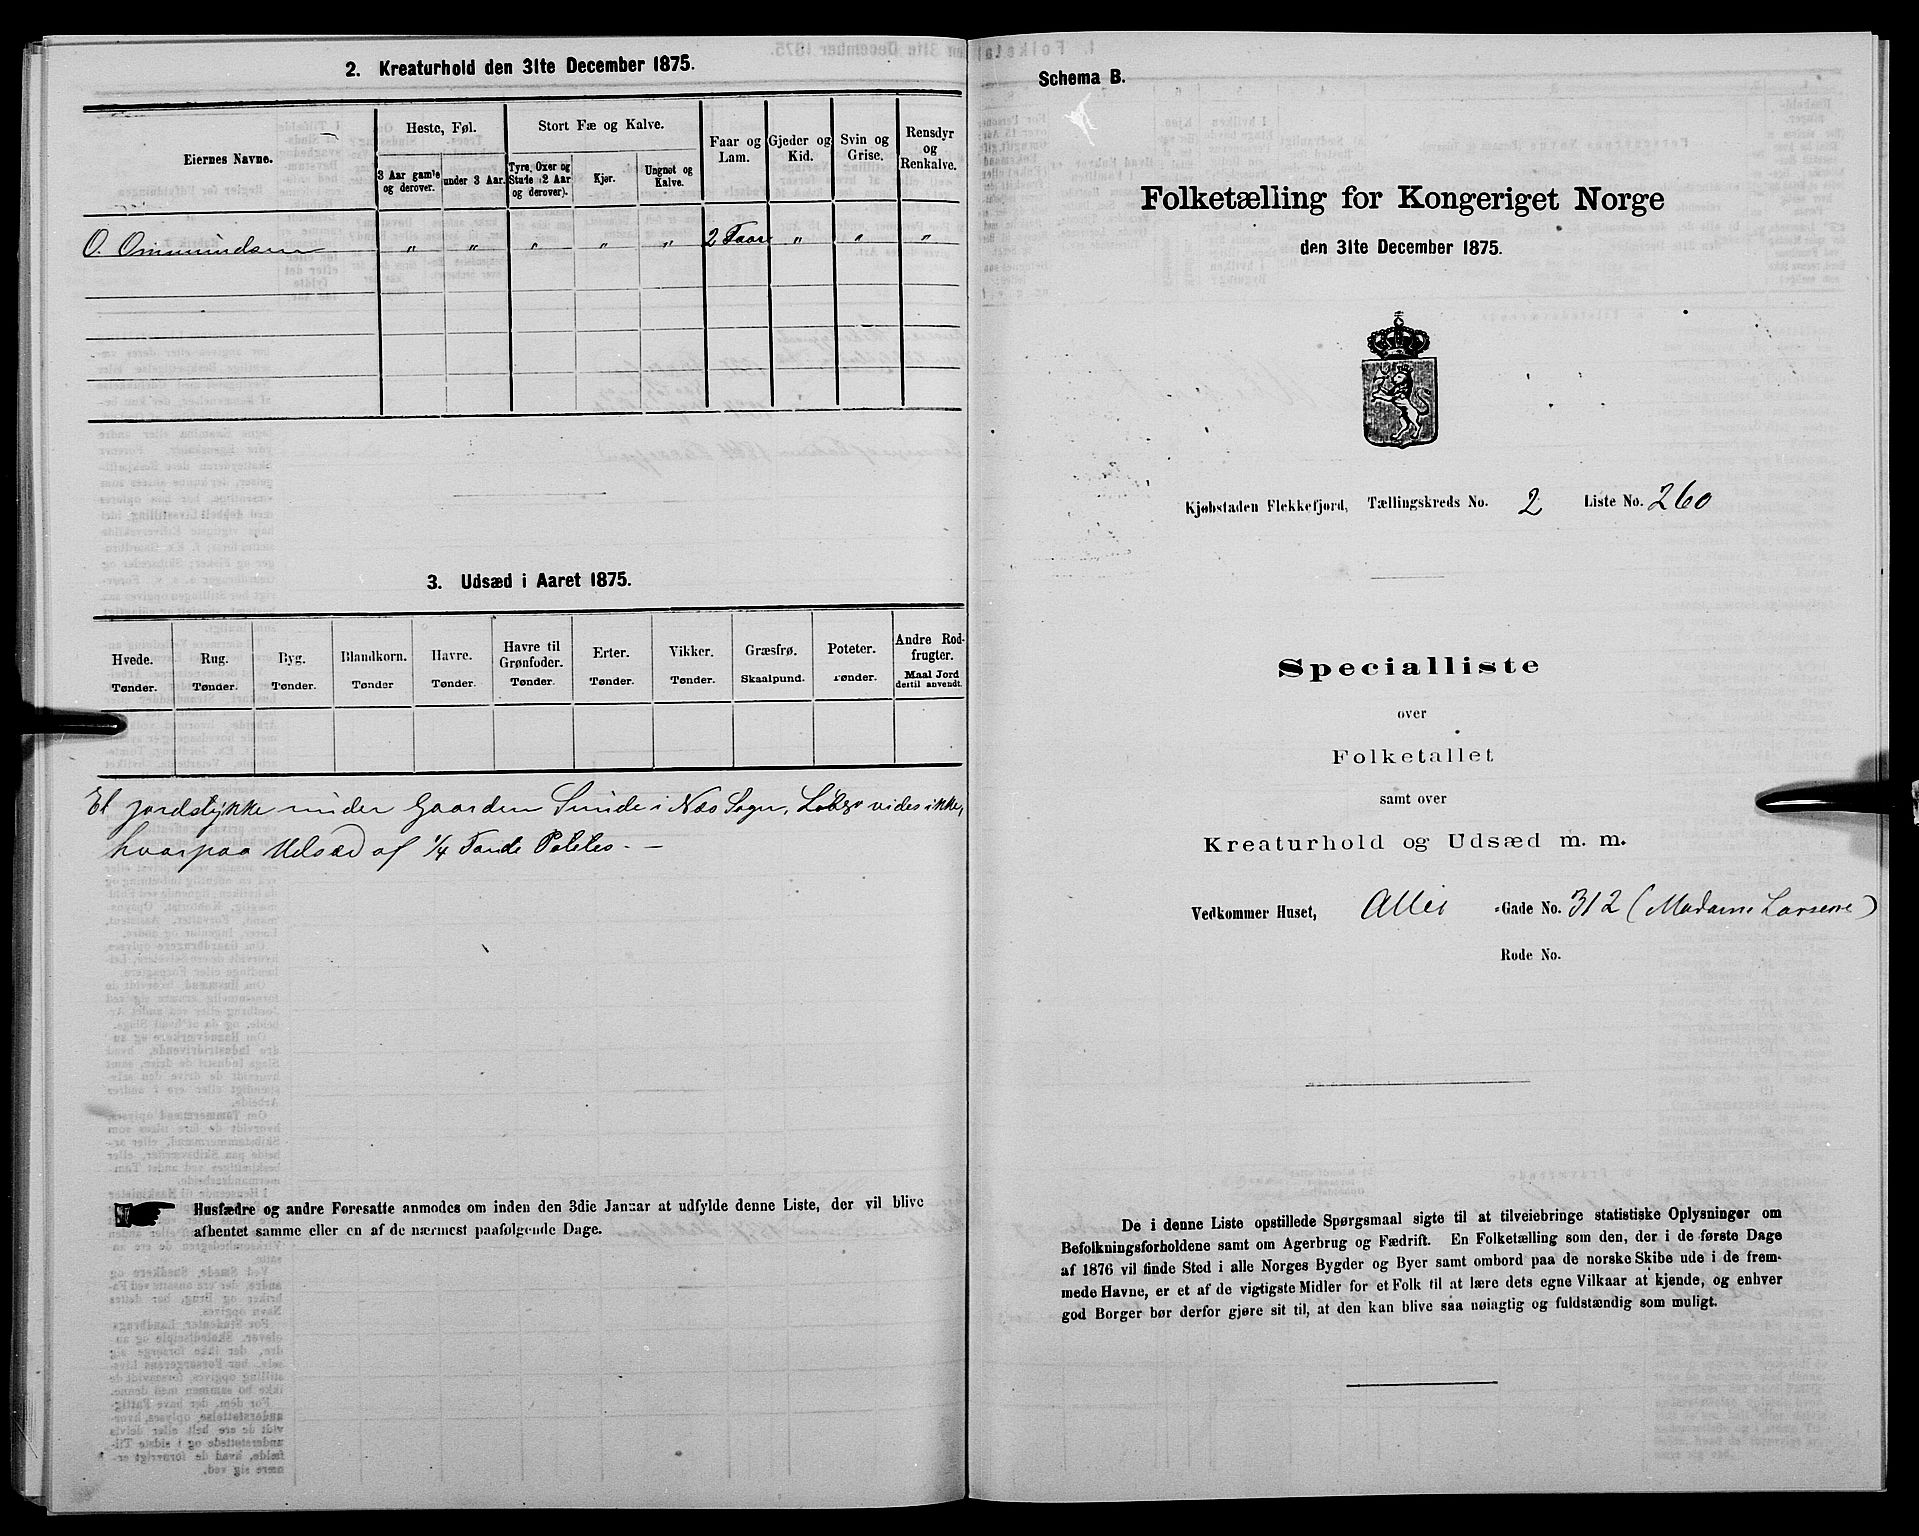 2. Kreaturhold den 31te December 1875.
Eiernes Navne.
Heste, Føl.
Stort Fæ og Kalve.
Faar og Lam.
Gjeder og Kid.
Svin og Grise.
Rensdyr og Renkalve.
3 Aar gamle og derover.
under 3 Aar.
Tyre, Oxer og Stude (2 Aar og derover).
Kjør.
Ungnøt og Kalve.
O. Ommundsen " " " " " 2 Faar " " "
3. Udsæd i Aaret 1875.
Hvede. Tønder.
Rug. Tønder.
Byg. Tønder.
Blandkorn. Tønder
Havre. Tønder.
Havre til Grønfoder. Tønder.
Erter. Tønder.
Vikker. Tønder.
Græsfrø. Skaalpund.
Poteter. Tønder.
Andre Rodfrugter. Maal Jord dertil anvendt.
Et Jordstykke under Gaarden Sunde i Næs Sogn, vides ikke,
hvorpaa Udsæd af 1/4 Tønde Poteter. —
Husfædre og andre Foresatte anmodes om inden den 3die Januar at udfylde denne Liste, der vil blive
afhentet samme eller en af de nærmest paafølgende Dage.
Schema B.
Folketælling for Kongeriget Norge
den 31te December 1875.
Kjøbstaden Flekkefjord, Tællingskreds No. 2 Liste No. 260
Specialliste
over
Folketallet
samt over
Kreaturhold og Udsæd m. m.
Vedkommer Huset, Allee -Gade No. 312 (Madame Larsene)
Rode No.
De i denne Liste opstillede Spørgsmaal sigte til at tilveiebringe statistiske Oplysninger om
Befolkningsforholdene samt om Agerbrug og Fædrift. En Folketælling som den, der i de første Dage
af 1876 vil finde Sted i alle Norges Bygder og Byer samt ombord paa de norske Skibe ude i de frem-
mede Havne, er et af de vigtigste Midler for et Folk til at lære dets egne Vilkaar at kjende, og enhver
god Borger bør derfor gjøre sit til, at den kan blive saa nøiagtig og fuldstændig som muligt.